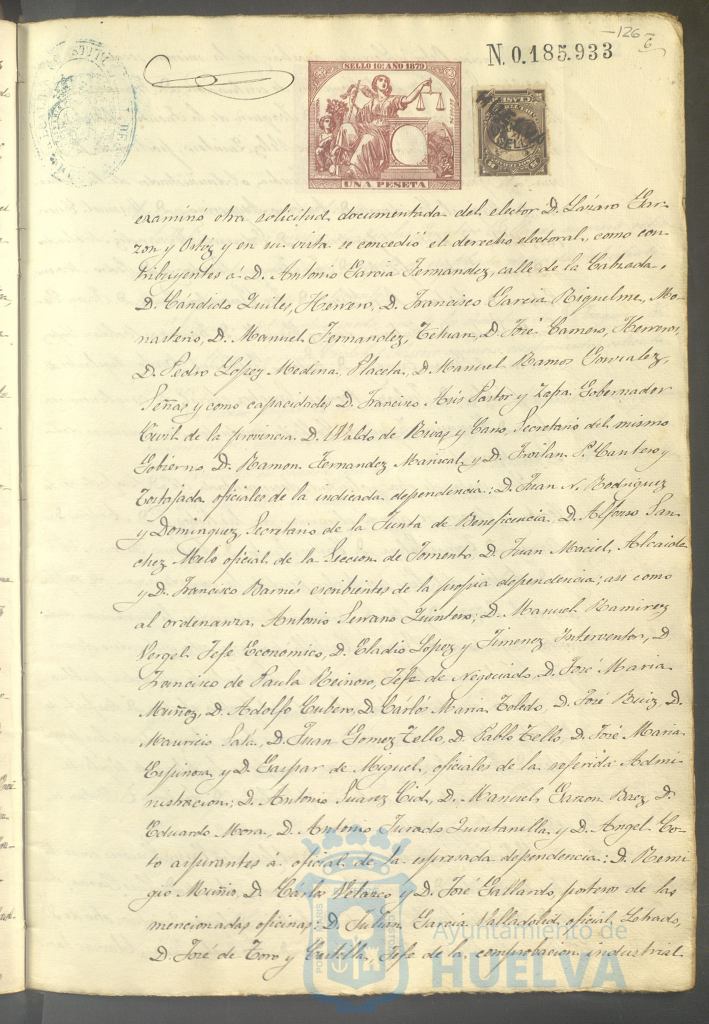 126
6
N. 0.185.933
SELLO 10º AÑO 1879
UNA PESETA
examinó otra solicitud documentada del elector D. Lázaro Gar-
zon y Ortiz y en su vista se concedió el derecho electoral, como con-
tribuyentes á D. Antonio Garcia Fernandez, calle de la Calzada,
D. Cándido Quiles, Herrero, D. Francisco Garcia Riquelme, Mo-
nasterio, D. Manuel Fernandez, Tetuan, D. José Camero, Herreros,
D. Pedro Lopez Medina, Placeta, D. Manuel Ramos Gonzalez,
Señas y como capacidades D. Francisco Asis Pastor y Zafra Gobernador
Civil de la provincia D. Waldo de Rivas y Cano, Secretario del mismo
Gobierno D. Ramon Fernandez Mariscal, y D. Froilan P. Cantero y
Tortajada oficiales de la indicada dependencia; D. Juan N. Rodriguez
y Dominguez, Secretario de la Junta de Beneficencia D. Alfonso San-
chez Melo oficial de la Seccion de Fomento D. Juan Maciel, Alcaide
y D. Francisco Barnés escribientes de la propia dependencia; asi como
al ordenanza, Antonio Serrano Quintero; D. Manuel Ramirez
Vergel Jefe Economico, D. Eladio Lopez y Jimenez Interventor, D.
Francisco de Paula Reinoso, Jefe de Negociado, D. José Maria
Muñoz, D. Adolfo Cubero, D. Cárlos Maria Toledo, D. José Ruiz, D.
Mauricio Sala, D. Juan Gomez Tello, D. Pablo Tello, D. José Maria
Espinosa y D. Gaspar de Miguel, oficiales de la referida Admi-
nistracion; D. Antonio Suarez Cid, D. Manuel Garzon Baez, D.
Eduardo Mora, D. Antonio Jurado Quintanilla, y D. Angel Co-
to aspirantes á oficial de la espresada dependencia: D. Remi-
gio Muñiz, D. Carlos Velazco y D. José Gallardo, porteros de las
mencionadas oficinas; D. Julian Garcia Valladolid, oficial Letrado,
D. José de Toro y Castilla, Jefe de la comprobacion industrial
Ayuntamiento de
HUELVA